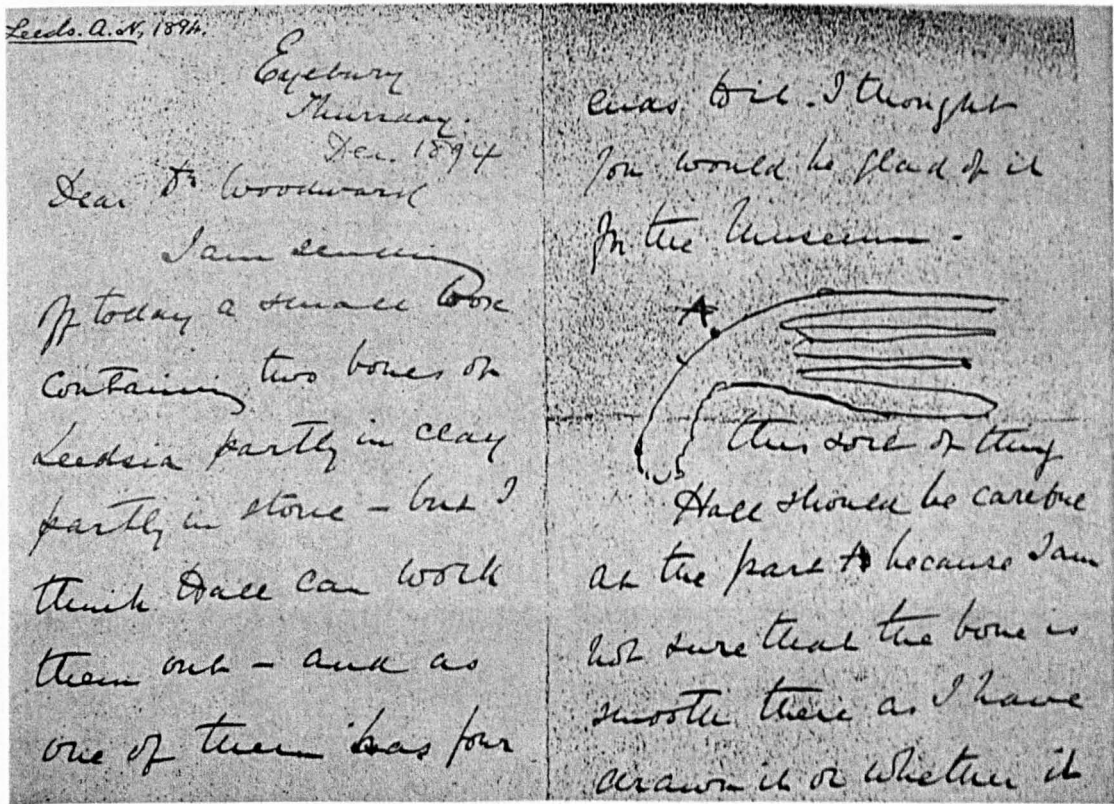 Leeds. A.N, 1894.
Eyebury
Thursday.
Dec. 1894
Dear Dr Woodward
I am sending
off today a small box
containing two bones of
Leedsia partly in clay
partly in stone - but I
think Hall can work
them out - and as
one of them has four
ends to it. I thought
you would be glad of it
for the Museum -
A
this sort of thing
Hall should be careful
at the part A because I am
not sure that the bone is
smooth there as I have
drawn it or whether it